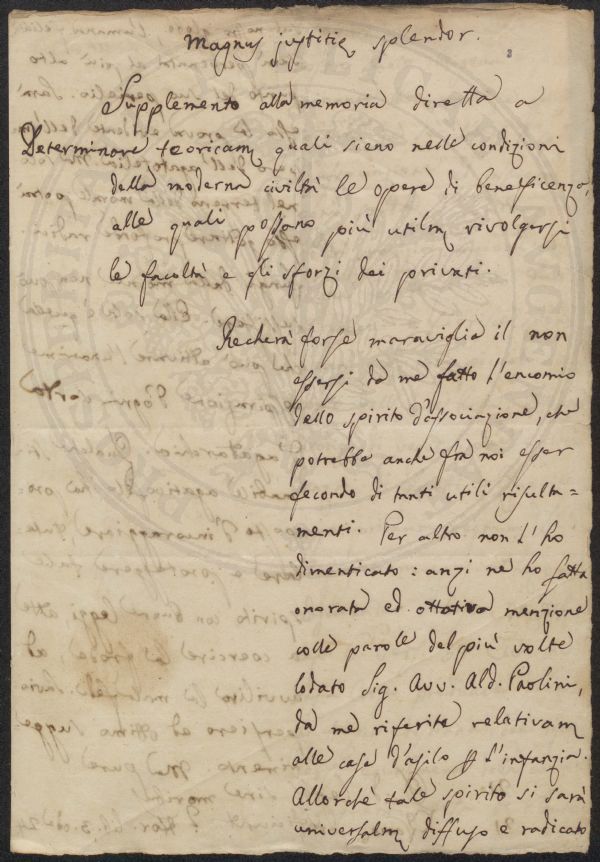 Magnus justitię splendor.
Supplemento alla memoria diretta a
Determinare teoricam quali sieno nelle condizioni
della moderna civiltà le opere di beneficenza,
alle quali possano più utilm rivolgersi
le facoltà e gli sforzi dei privati.
Recherà forse maraviglia il non
essersi da me fatto l'encomio
dello spirito d'associazione, che
potrebbe anche frà noi esser
fecondo di tanti utili risulta=
menti. Per altro non l'ho
dimenticato: anzi ne ho fatta
onorata ed ottativa menzione
colle parole del più volte
lodato Sig. Avv. Ald. Paolini,
da me riferite relativam
alle case d'asilo l'infanzia.
Allorchè tale spirito si sarà
universalm diffuso e radicato